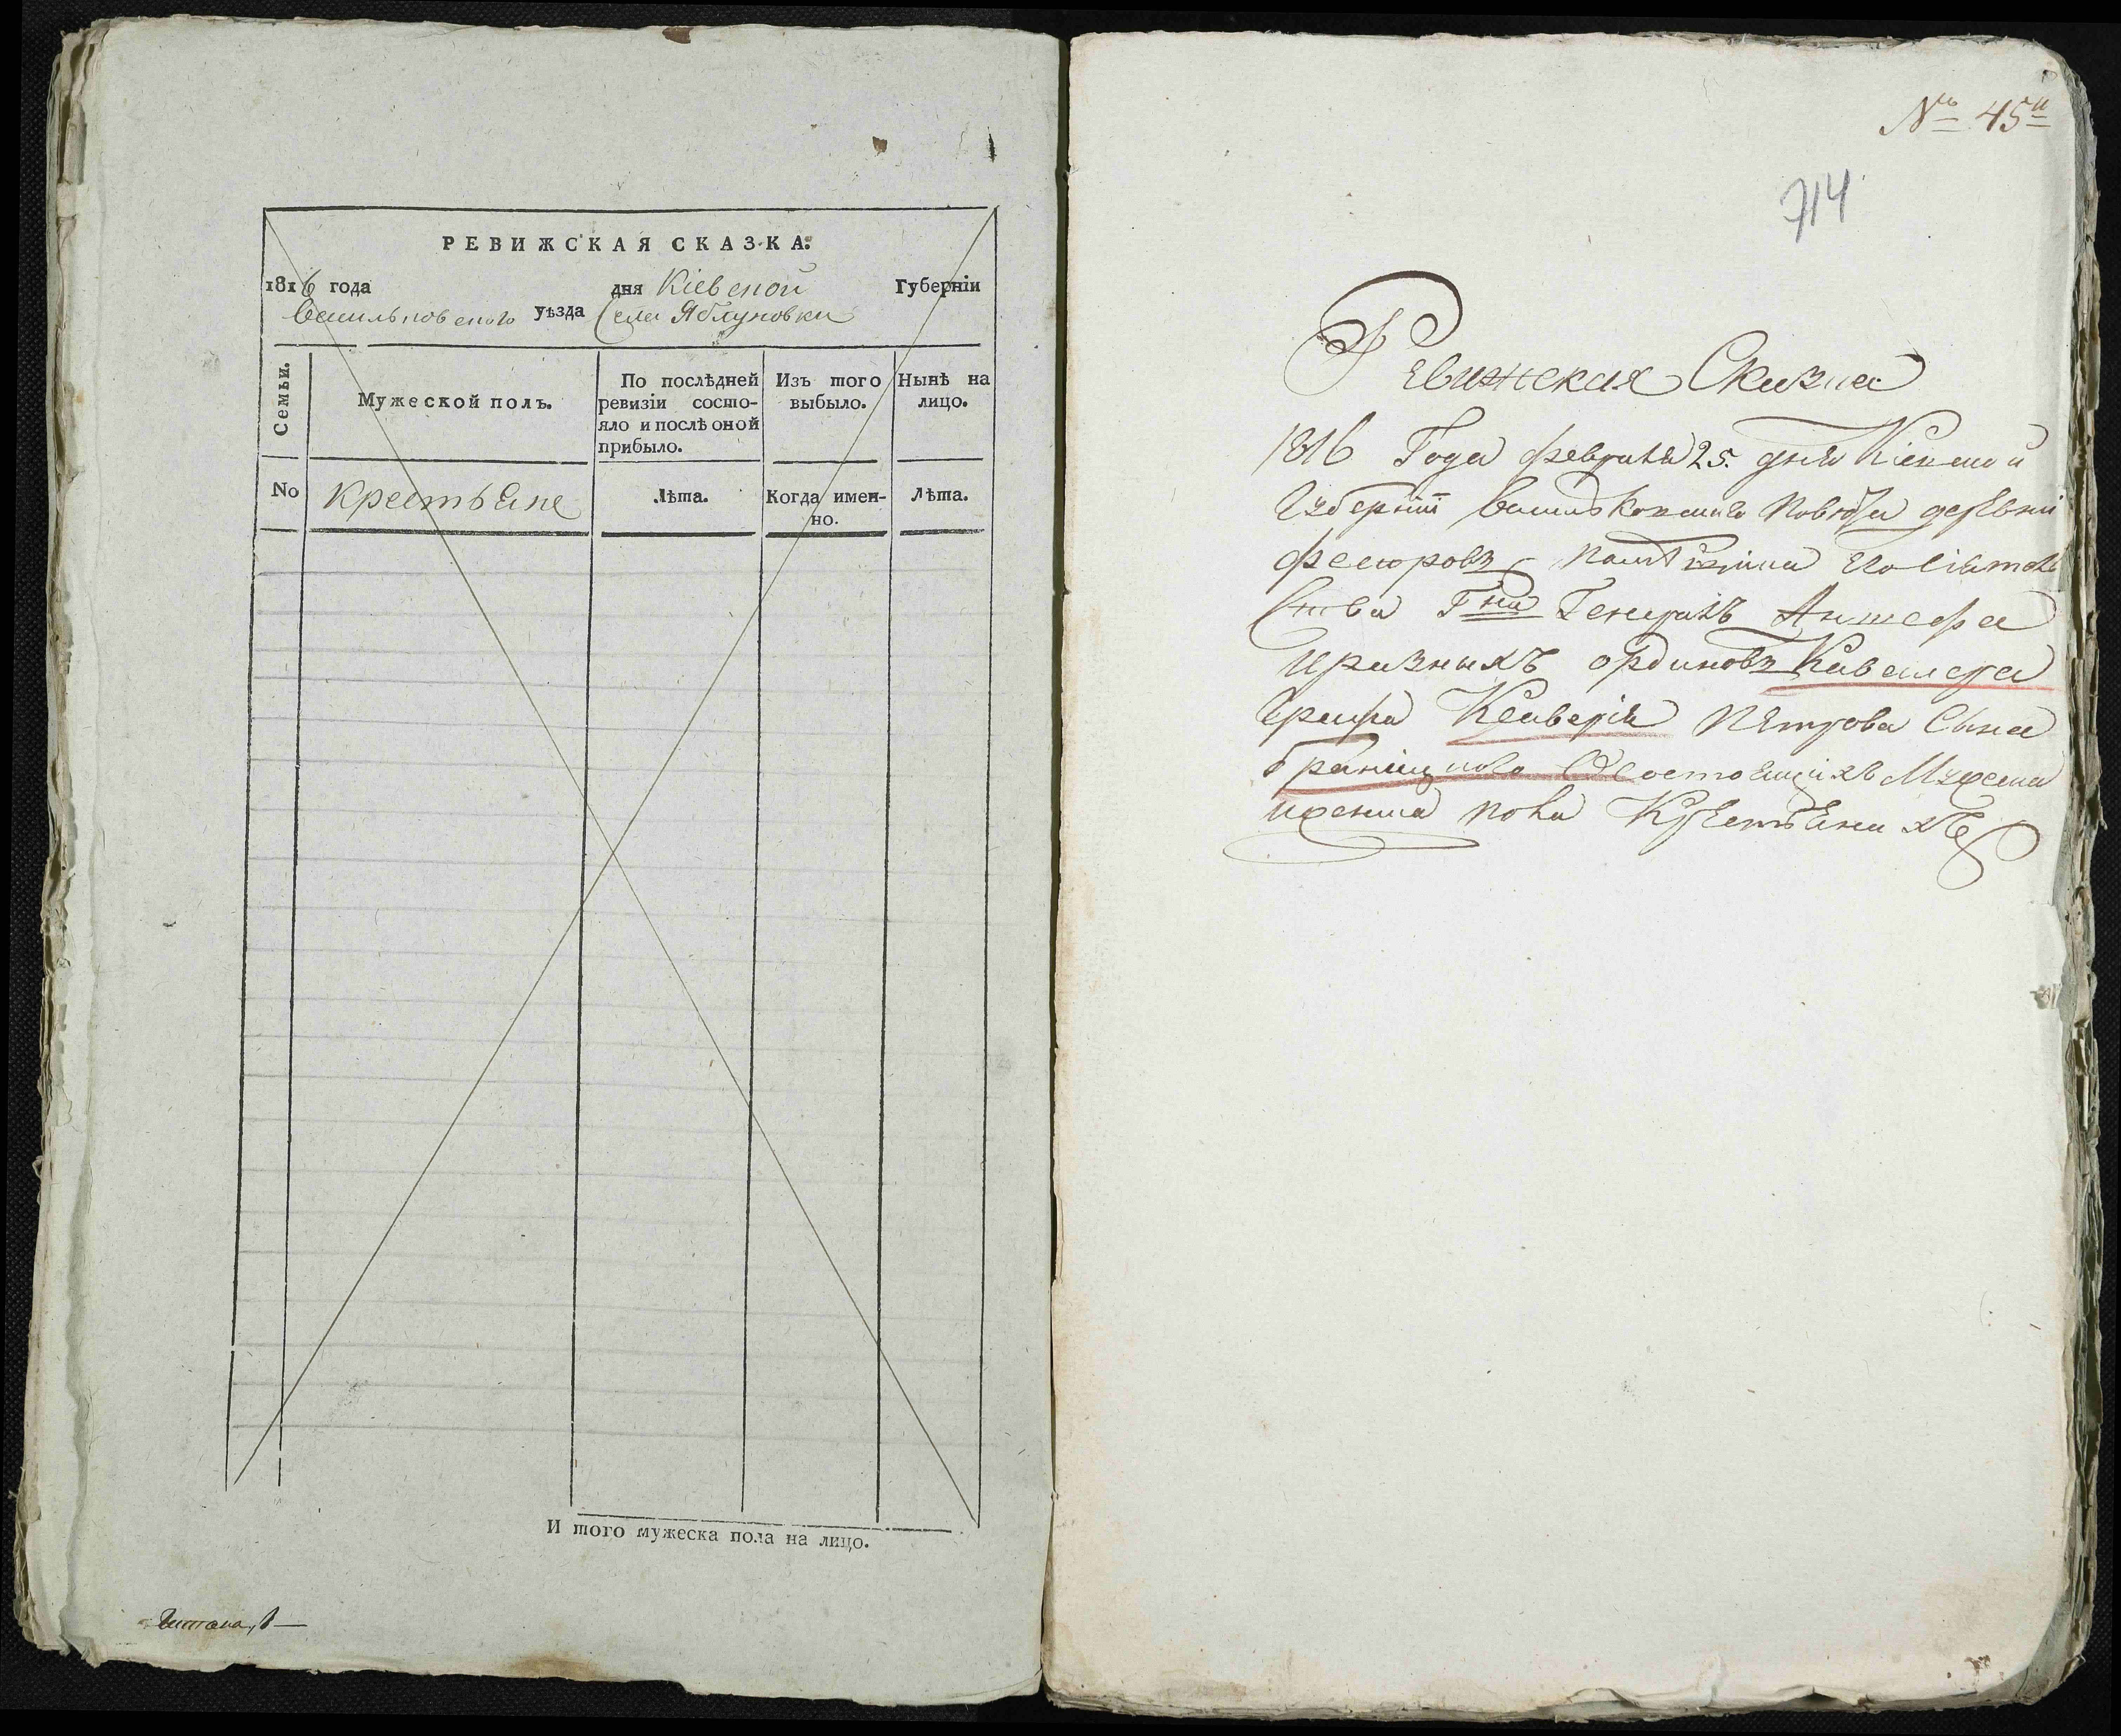 РЕВИЖСКАЯ СКАЗКА.
1816 года дня Кіевской Губерніи
Васильковского уѣзда Села Яблуновки
Семьи.
Мужеской полъ.
По послѣдней ревизіи состо-
яло и послѣ оной
прибыло.
Изъ того
выбыло.
Нынѣ на
лицо.
No
крестьяне
Лѣта.
Когда имен-
но.
Лѣта.
И того мужеска пола на лицо.
№ 45й
714
Ревижская Сказка
1816 Года февраля 25. дня Кіевской
Губерніи Васильковского Повѣта деревни
помѣщика Его Сіятель
Ства Гна Генералъ Аншефа
и разныхъ ординовъ Кавалера
Графа Ксаверія Петрова Сына
Браницкого О Состоящихъ Мужеска
и женска пола Крестьянахъ